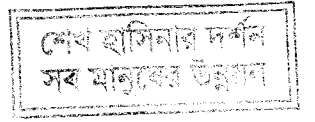 শেখ হাসিনার দর্শন
সব মানুষের উন্নয়ন